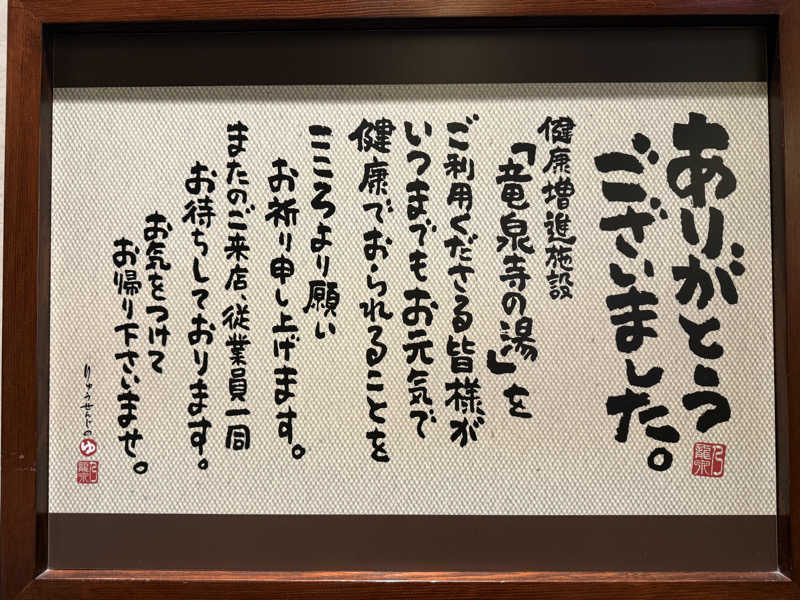 ありがとう
ございました。
健康増進施設
「竜泉寺の湯」を
ご利用くださる皆様が
いつまでもお元気で
健康でおられることを
こころより願い
お祈り申し上げます。
またのご来店、従業員一同
お待ちしております。
お気をつけて
お帰り下さいませ。
りゅうせんじの
ゆ